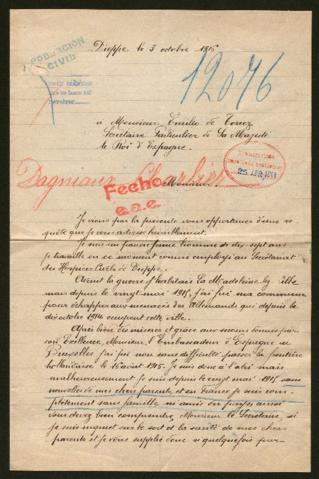 POBLACION
CIVIL
Dieppe le 3 octobre 1915
12076
a Monsieur Emilio de Torrez
Secrétaire Particulier de Sa Majesté
le Roi d'Espagne.
25
Fecho
Monsieur
Je viens par la présente vous
quête que je vous adresse humblement.
Je suis un jeune homme de dix sept ans
je travaille en ce moment comme employé au Secrétariat
des Hospices Civils de Dieppe.
Avant la guerre j'habitais La Madeleine lez Lille
mais depuis le vingt mai 1915, j'ai fui ma commune
pour échapper aux menaces des Allemands qui depuis le
dix octobre 1914 occupent cette ville.
Après bien des misères et grâce aux soins donnés par
son Excellence, Monsieur l'Ambassadeur d'Espagne de
Bruxelles j'ai pu non sans difficulté passer la frontière
hollandaise le 16 août 1915. Je suis donc à l'abri mais
malheureusement je suis depuis le vingt mai 1915 sans
nouvelles de mes chers parents, et en France je suis com-
plètement sans famille ni amis du pays, aussi
vous devez bien comprendre, Monsieur le Secrétaire, si
je suis inquiet sur le sort et la santé de mes chers
parents et je viens supplié donc si quelquefois par-